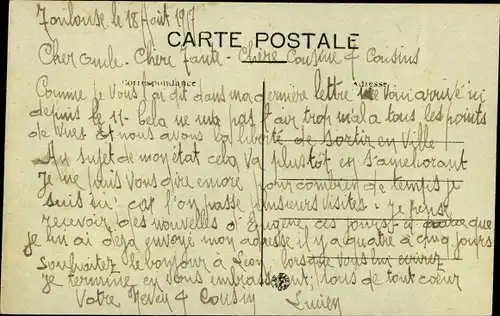 Toulouse le 18 Août 1917
CARTE POSTALE
Cher oncle - Chère Tante - Chère Cousine & Cousins
Correspondance Adresse
Comme je vous l'ai dit dans ma dernière lettre me voui arrivé ici
depuis le 11 - Cela ne m'a pas l'air trop mal a tous les points
de vues et nous avons la liberté de sortir en Ville
Au sujet de mon état cela va plustôt en s'amériorant
je ne puis vous dire encore pour combien de temps je
suis ici car l'on passe plusieurs visites. je pense
recevoir des nouvelles d'Eugène ces jours ci que
je lui ai déjà envoyé mon adresse il y a quatre à cinq jours
Souhaitez le bonjour à Léon, lorsque vous lui écrirez
je termine en vous embrassant tous de tout cœur
Votre Neveu & Cousin Lucien